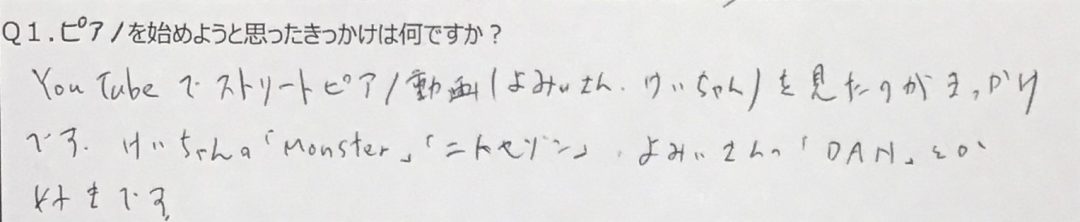 Q1.ピアノを始めようと思ったきっかけは何ですか？
YouTubeでストリートピアノ動画(よみぃさん、けいちゃん)を見たのがきっかけ
です. けいちゃんの「Monster」「ニトセゾン」、よみぃさんの「DAN」とか
好きです